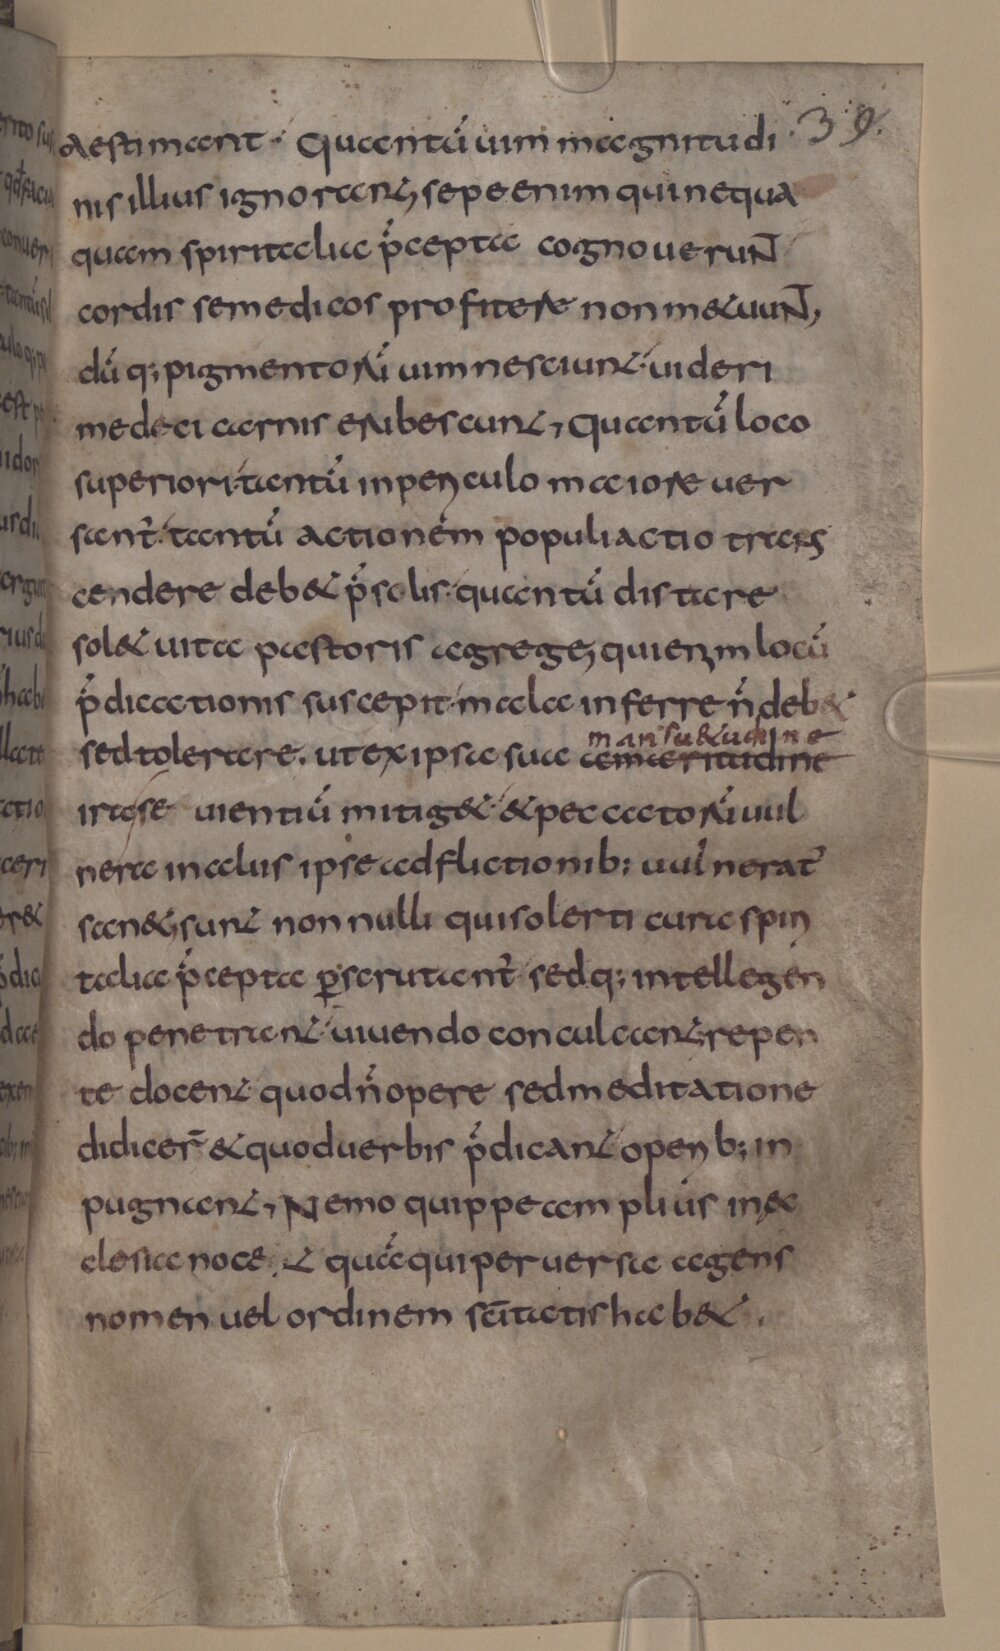 39.
Aestimant · Quantū uim magnitudi
nis illius ignorant, sepe enim qui nequa
quam spiritalia p̄cepta cognouerunt
cordis se medicos profitere non metuunt,
dū q; pigmentorū uim nesciunt · uideri
medeci carnis erubescunt, Quantū loco
superiori · tantū in periculo maiore uer
sant̄ · tantū actionem populi actio trans
cendere debet p̄solis · quantū distare
solet uita pastoris a grege, qui enim locū
p̄dicationis suscepit · mala inferre n̄ debet
mansuetudine
sed tolerare. ut ex ipsa sua amaritudine
irase uientiū mitiget · & peccatorū uul
nera in aluis ipse adflictionib; uulnerat̄
sanet, sunt non nulli qui solerti cura spiri
talia p̄cepta p̱scrutant̄ · sed q; intellegen
do penetrant · uiuendo conculcant, repen
te docent · quod n̄ opere sed meditatione
didicer̄ & quod uerbis p̄dicant operib; in
pugnant, Nemo quippe am plius in ec
clesia noce t quā qui peruersa agens
nomen uel ordinem sc̄itatis habet .